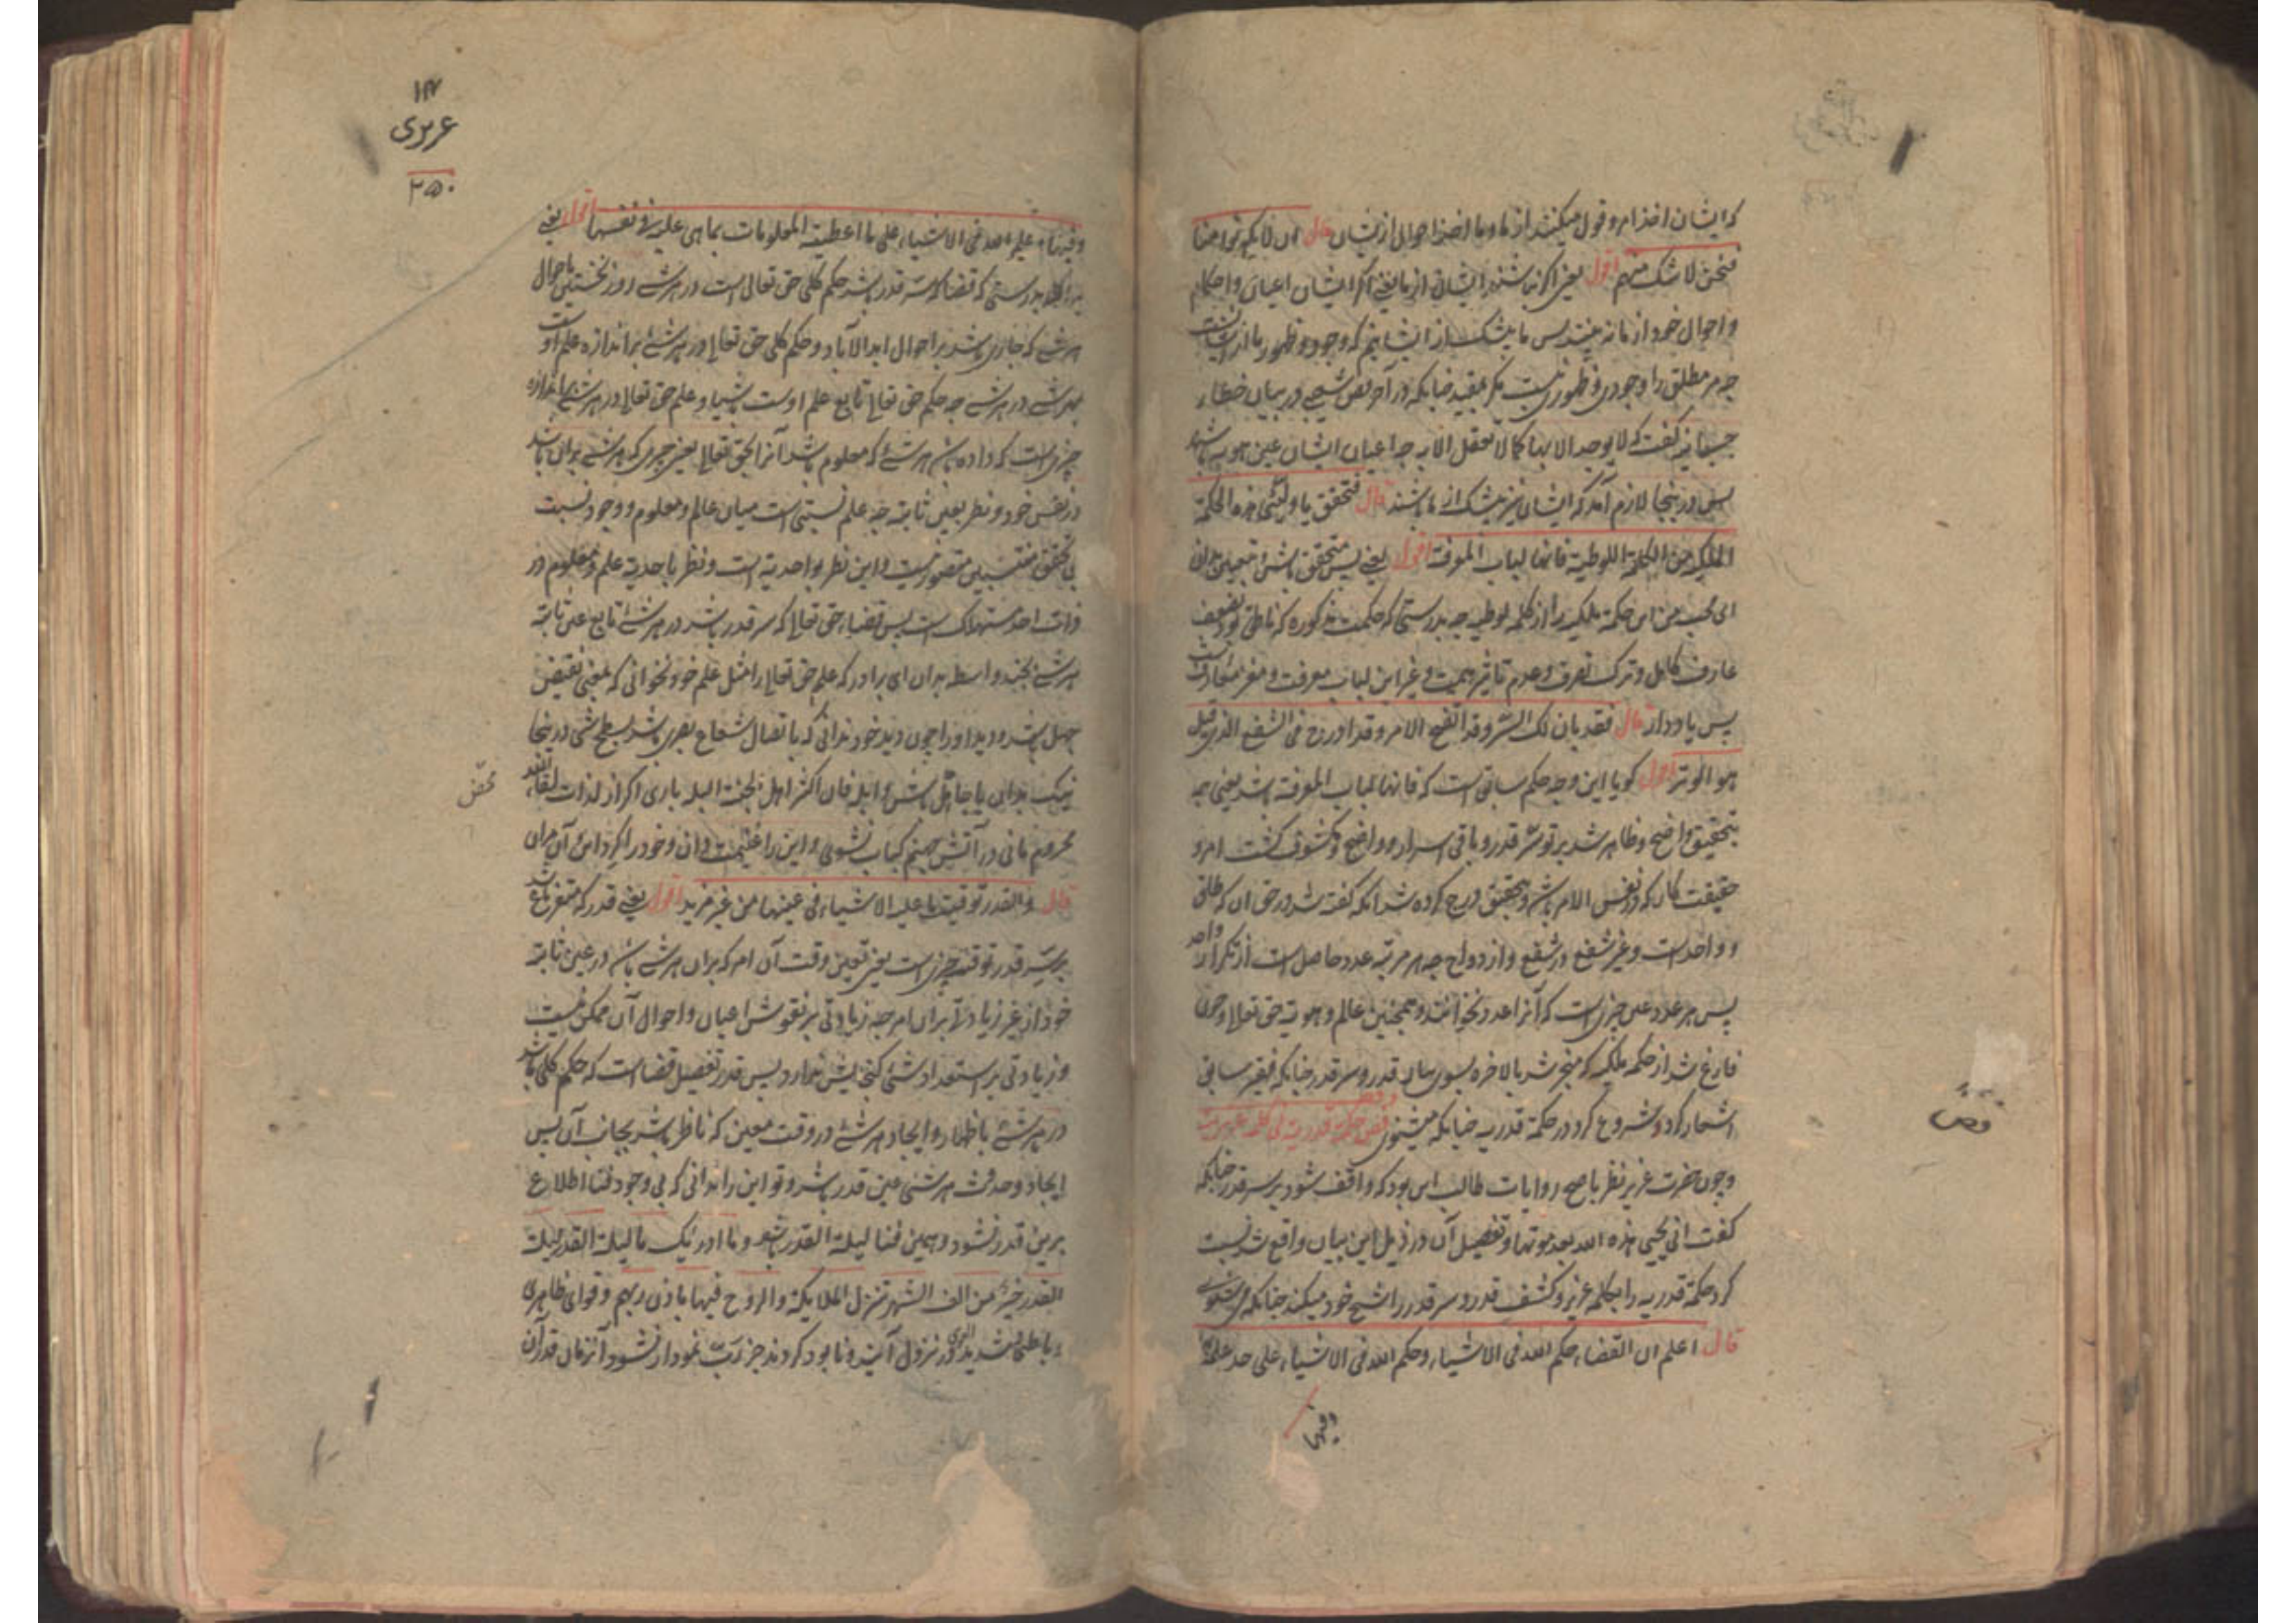 که ایشان اخذ امر و قول میکنند از ما و ما اخذ احوال ازیشان قال ان لا یکونوا منا
فنحن لا شک منهم اقول یعنی اگر نباشند ایشان از ما یعنی اگر ایشان اعیان و احکام
و احوال خود از ما نه بینند پس ما بیشک از ایشانیم که وجود و ظهور ما از ایشانست
چه مر مطلق را وجودی و ظهوری نیست مگر بمقید چنانکه در آخر فص شیثی در بیان خطاء
گفت که لا یوجد الا بها کما لا تعقل الا به چه اعیان ایشان عین هویه باشد
پس درینجا لازم آمد که ایشان نیز بیشک از ما باشند قال فتحقق یا ولیی هذه الحکمة
الملکیة من الکلمة اللوطیة فانها لباب المعرفة اقول یعنی پس متحقق باش
ای محب من این حکمة ملکیه را از کلمه لوطیه چه بدرستی که حکمت مذکوره که ناطق بود بضعف
عارف کامل و ترک تصرف و عدم تاثیر همت و غیر این لباب معرفت و مغز معارفست
پس یاد دار قال فقد بان لک السر وقد اتضح الامر وقد ادرج فی الشفع الذی قیل
هو الوتر اقول گویا این وجه حکم سابق است که فانها لباب المعرفة باشد یعنی چه
بتحقیق واضح و ظاهر شد بر تو سر قدر و باقی اسرار و واضح و مکشوف گشت امر و
حقیقت کار که در نفس الامر باشد و بتحقیق درج کرده شد آنکه گفته شد در حق ان که طاق
و واحد است و غیر شفع در شفع و ازدواج چه هر مرتبه عدد حاصل است از تکرار واحد
پس هر عدد عین چیزی است که آنرا عدد نخوانند و همچنین عالم و هویه حق تعالی و چون
فارغ شد از حکمه ملکیه که منجر شد بالاخره بسوی بیان قدر و سر قدر چنانکه فقیر سابق
اشعار کرد و شروع کرد در حکمة قدریه چنانکه میشنوی فص حکمة قدریة فی کلمة عزیریة
و چون حضرت عزیر نظر باصح روایات طالب این بود که واقف شود بر سر قدر چنانکه
گفت انی یحیی هذه الله بعد موتها و تفصیل آن در ذیل این بیان واقع شد نسبت
کرد حکمة قدریه را بکلمه عزیر و کشف قدر و سر قدر را شیخ خود میکند چنانکه میشنوی
قال اعلم ان القضاء حکم الله فی الاشیاء وحکم الله فی الاشیاء علی حد علمه
وفیها
فص
عزیری
۲۵۰
وفیها وعلم الله فی الاشیاء علی ما اعطیته المعلومات بما هی علیه فی نفسها اقول یعنی
بدانکه بدرستی که قضا که سر قدر باشد حکم کلی حق تعالی است در هر شئے روز نخستین باحوال
هر شئے که جاری باشد بر احوال ابد الآباد و حکم کلی حق تعالی در هر شئے بر اندازه علم اوست
بهر شئے در هر شئے چه حکم حق تعالی تابع علم اوست باشیا و علم حق تعالی در هر شئے بر اندازه
چیزی است که داده باشد هر شئے که معلوم باشد آنرا بحق تعالی یعنی چیزی که هر شئے بران باشد
در نفس خود و نظر بعین ثابته چه علم نسبتی است میان عالم و معلوم و وجود نسبت
بی تحقق منتسبین متصور نیست و این نظر بواحدیة است و نظر باحدیة علم و معلوم در
ذات احد مستهلک است پس قضاء حق تعالی که سر قدر باشد در هر شئے تابع عین ثابته
هر شئے بیند واسطه بدان ای برادر که علم حق تعالی را مثل علم خود نخوانی که بمعنی نقیض
جهل باشد و دید او را چون دید خود ندانی که باتصال شعاع بصری باشد بسطح شئ درینجا
نیک بدان یا جاهل باش و ابله فان اکثر اهل الجنة البله باری اگر از لذات لقاء الله
محض
محروم مانی در آتش جهنم کباب نشوی و این را غنیمت دان و خود را گرد این آن مران
قال والقدر توقیت ما علیه الاشیاء فی عینها من غیر مزید اقول یعنی قدر که متفرع باشد
بر سر قدر توقیت چیزی است یعنی تعیین وقت آن امر که بران هر شئے باشد در عین ثابته
خود از غیر زیادتی بران امر چه زیادتی بر نقوش اعیان و احوال آن ممکن نیست
و زیادتی بر استعداد شئ گنجایش ندارد پس قدر تفصیل قضا است که حکم کلی باشد
در هر شئے باظهار و ایجاد هر شئے در وقت معین که ناظر باشد بجانب آن پس
ایجاد و حدوث هر شئ عین قدر باشد و تو این را بدانی که بی وجود فنا اطلاع
برین قدر نشود و همین فنا لیلة القدر باشد وما ادریک ما لیلة القدر لیلة
القدر خیر من الف شهر تنزل الملایکة والروح فیها باذن ربهم و قوای ظاهری
و باطنی در نزول آیند و نابود گردند جز ربّ نمودار نشود آنزمان قدر آن